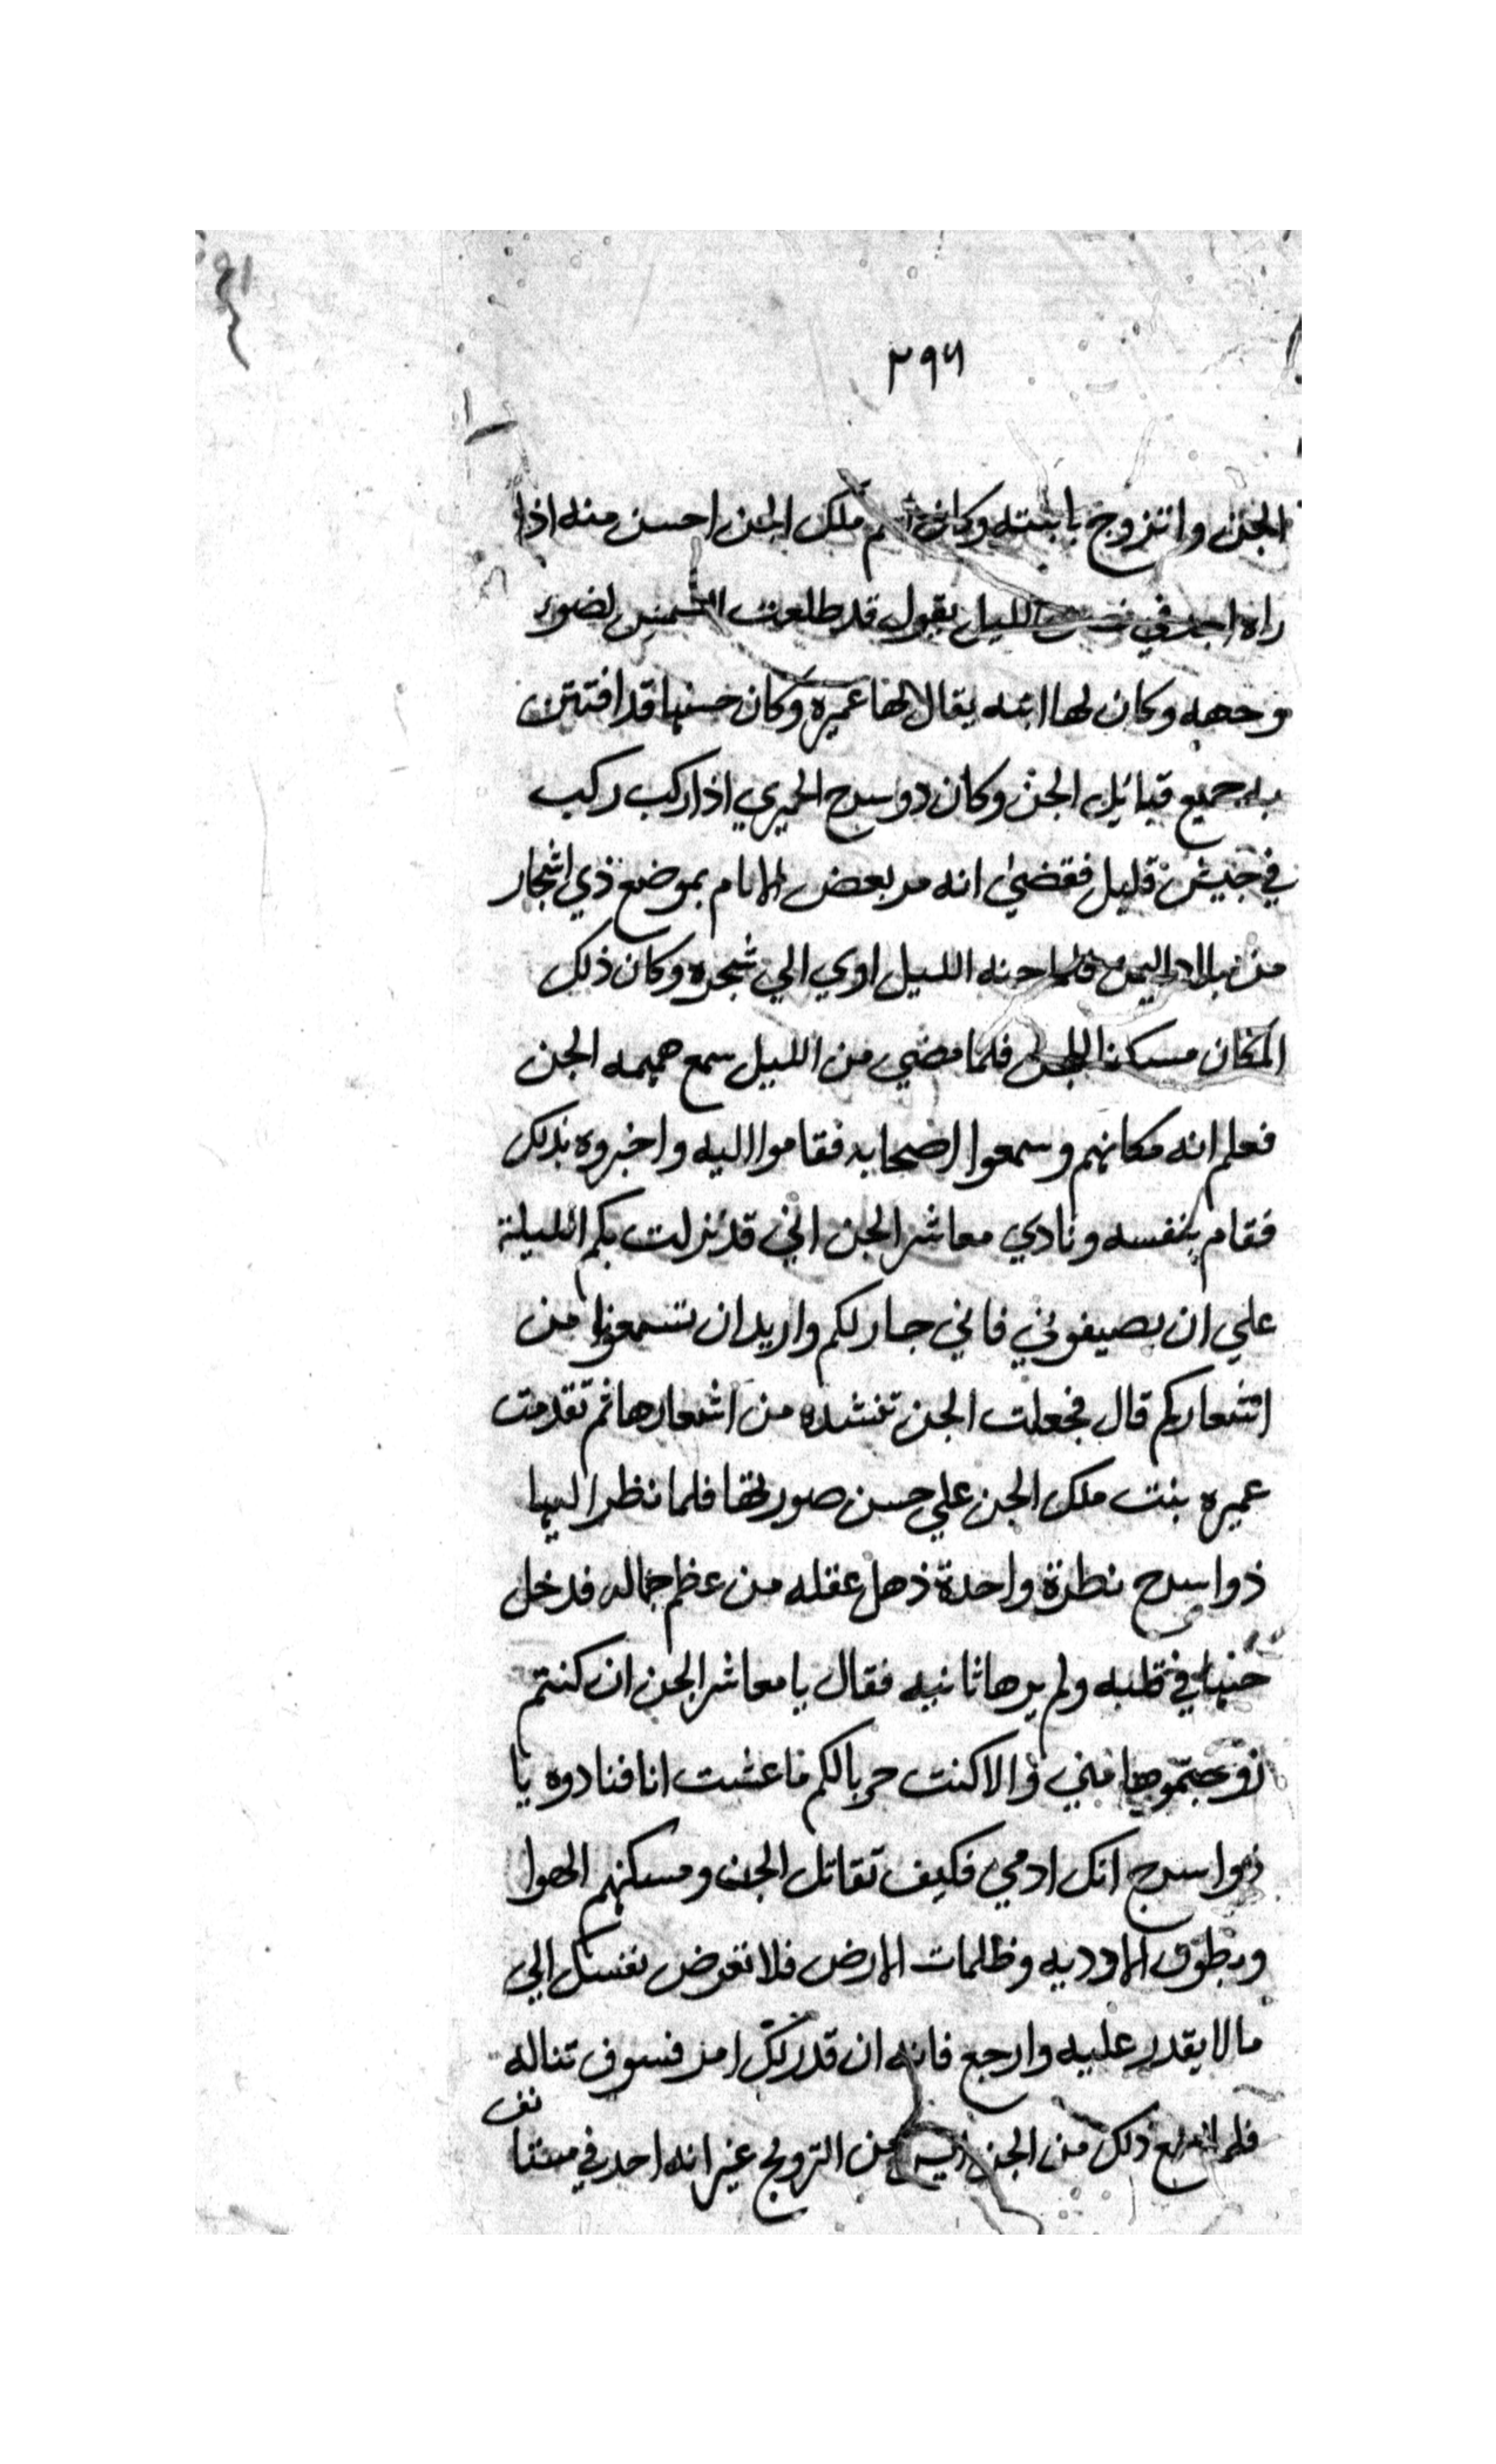 ٢٩٦
الجن واتزوج بابنته وكان ملك الجن احسن منه اذا
راه احد في الليل يقول قد طلعت الشمس لضوء
وجهه وكان لها ابنه يقال لها عميره وكان حسنها قد افتتن
به جميع قبائل الجن وكان ذو سرح الحميري اذا ركب ركب
في جيش قليل فقضي انه مر بعض الايام بموضع ذي اشجار
من بلاد اليمن فلما جنه الليل اوي الي شجره وكان ذلك
المكان مسكنا للجن فلما مضي من الليل سمع همهمه الجن
فعلم انه مكانهم وسمعوا اصحابه فقاموا اليه واخبروه بذلك
فقام بنفسه ونادي معاشر الجن اني قد نزلت بكم الليلة
علي ان تضيفوني فاني جار لكم واريد ان تسمعونا من
اشعاركم قال فجعلت الجن تنشده من اشعارها ثم تقدمت
عميره بنت ملك الجن علي حسن صورتها فلما نظر اليها
ذو اسرح نظرة واحدة ذهل عقله من عظم جماله فدخل
حبها في قلبه ولم يرها ثانيه فقال يا معاشر الجن ان كنتم
زوجتموها مني والا كنت حربا لكم ما عشت انا فنادوه يا
ذو اسرح انك ادمي فكيف تقاتل الجن ومسكنهم الهوا
وبطون الاوديه وظلمات الارض فلا تعرض نفسك الي
ما لا يقدر عليه وارجع فانه ان قدر لك امر فسوف تناله
فلما سمع ذلك من الجن ايس من التزويج غير انه احد في
نف